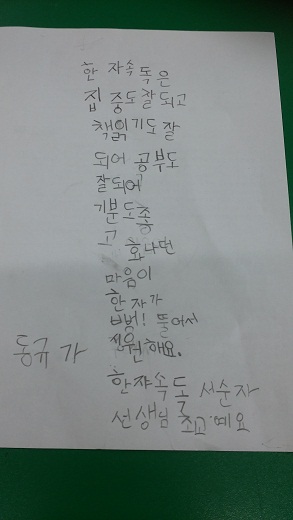 한 자속독은
집중도잘되고
책읽기도잘
되어 공부도
잘되어
기분도좋
고 화나던
마음이
한자가
뻥! 뚫어서
시원해요.
동규가
한쟈속독 서순자
선생님 최고예요